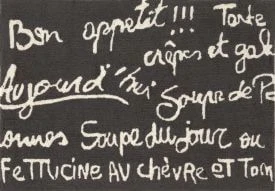 Bon appetit!!! Tarte
crêpes et gale
Aujourd'hui Soupe de Po
ommes Soupe du jour ou
FETTUCINE AU CHÈVRE ET Tom